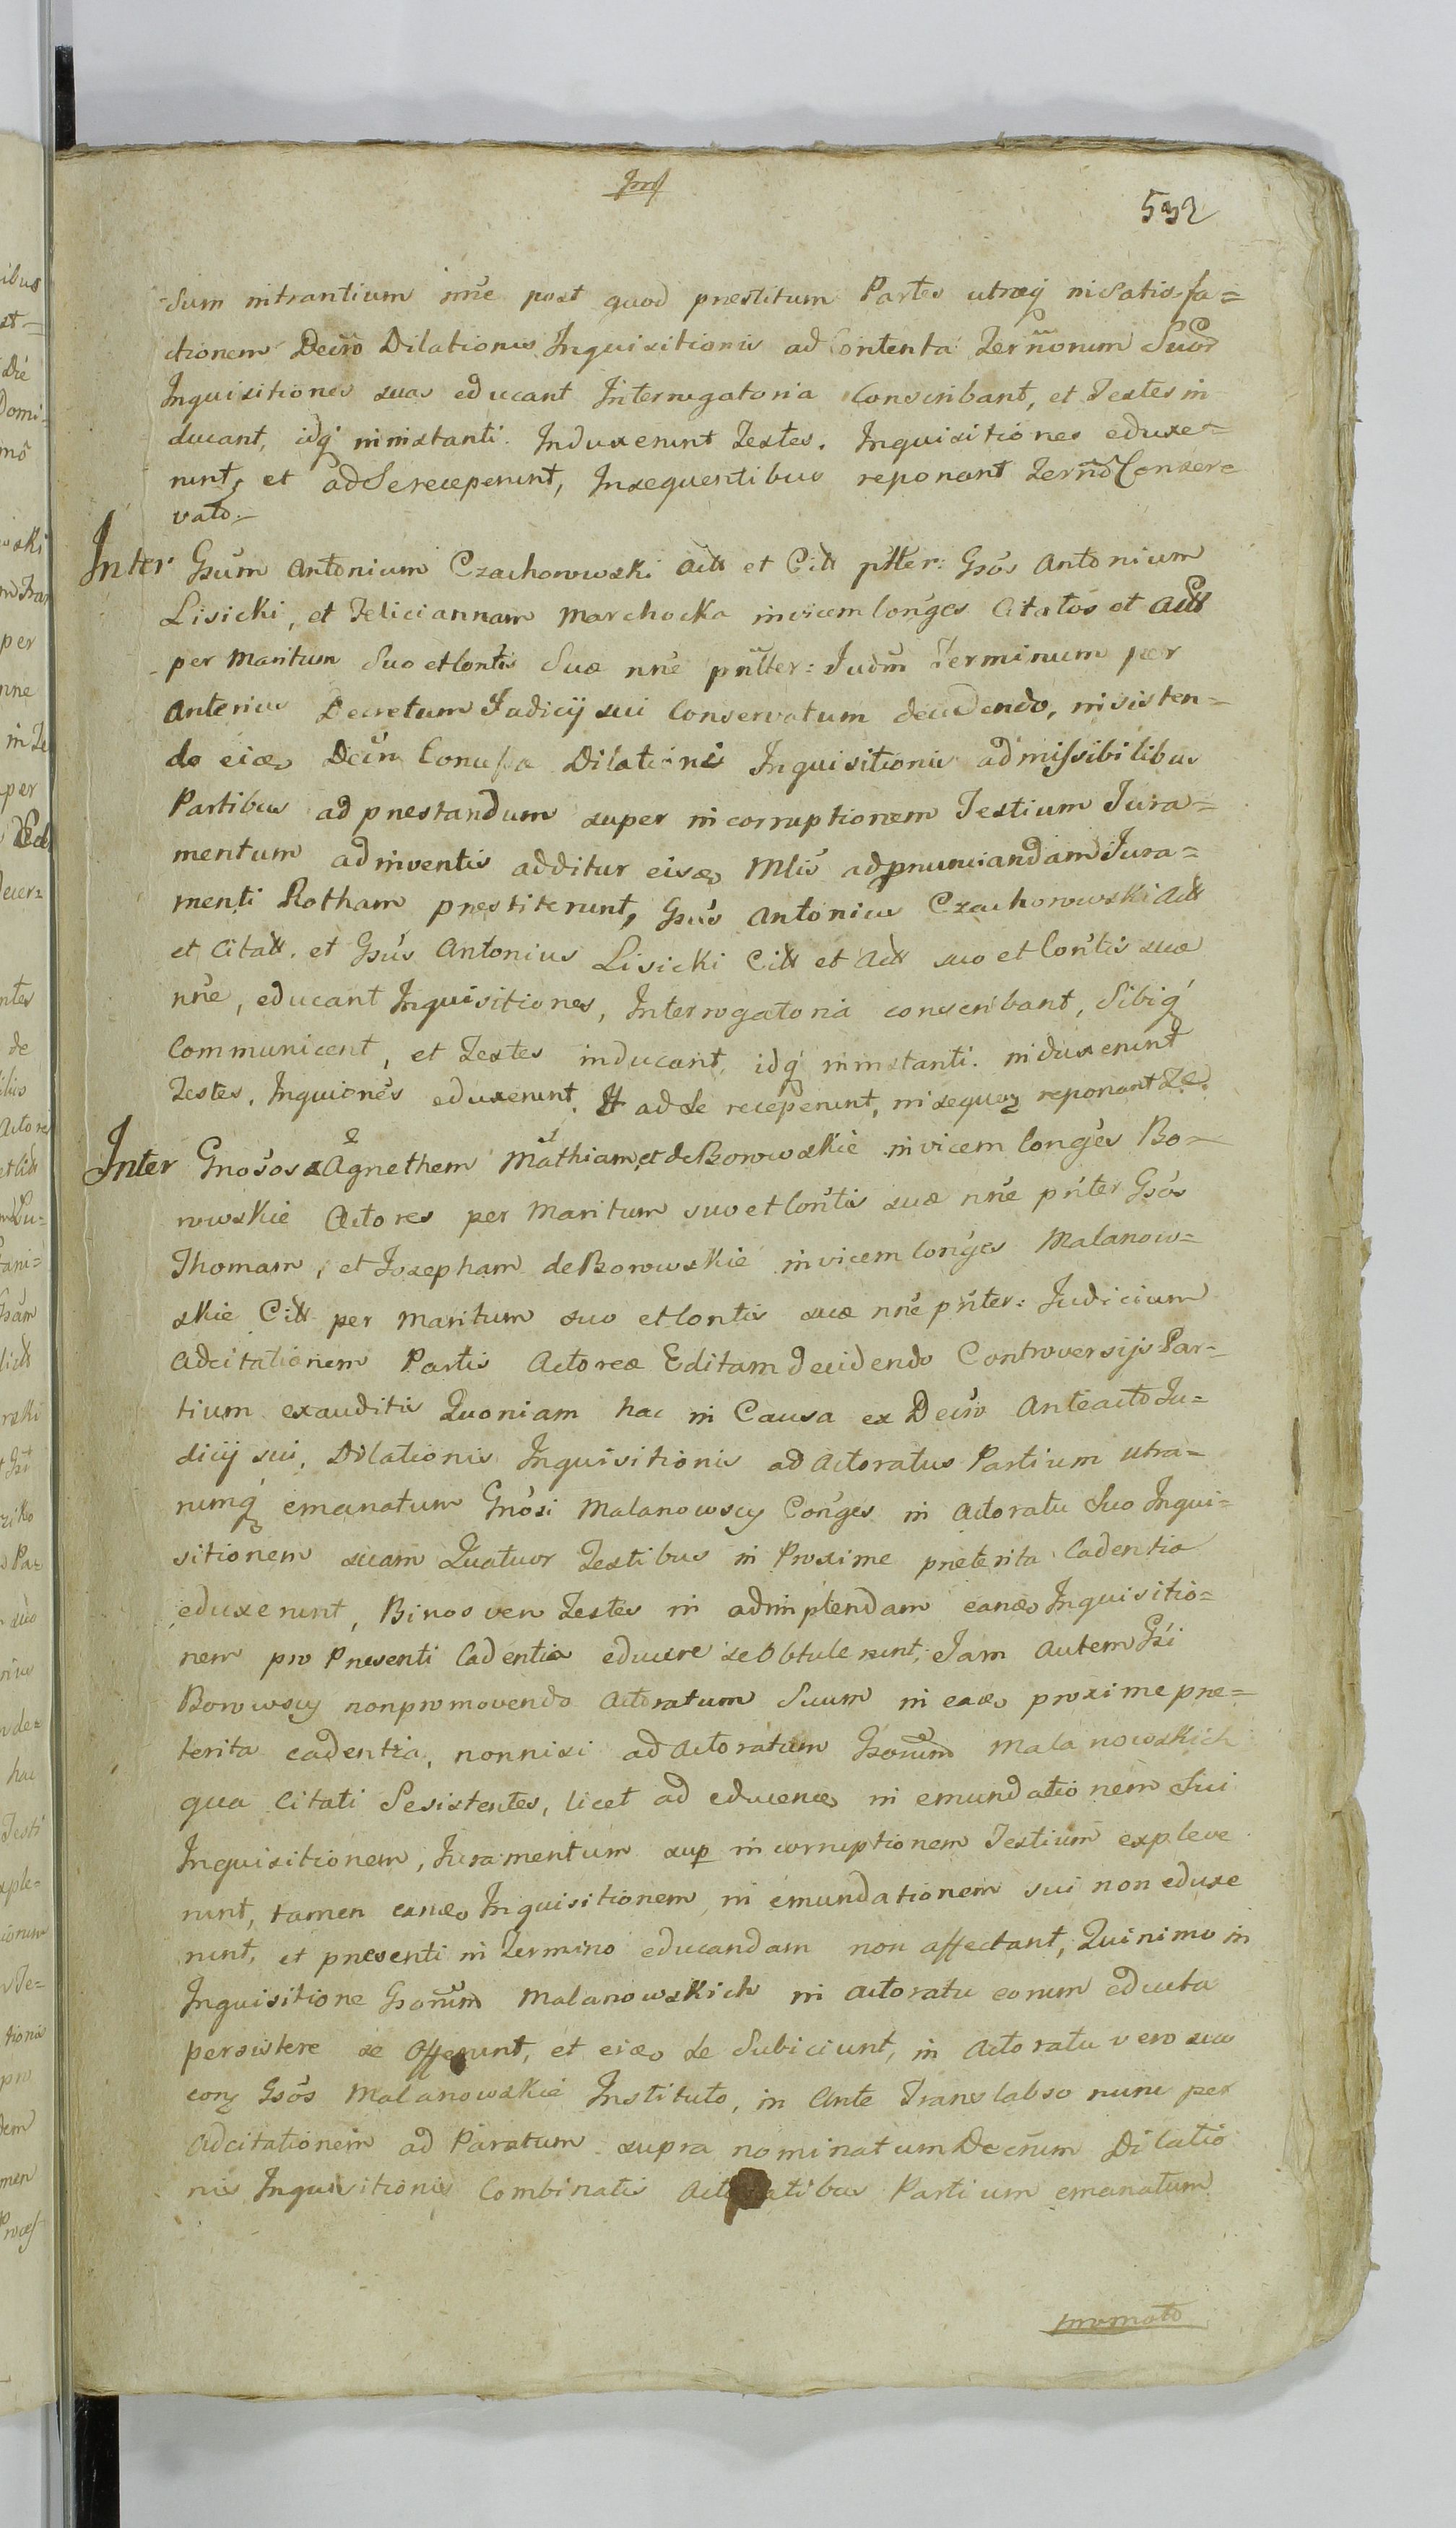 532
sum intrantium nne post quod prestitum Partes utraq in Satisfa=
ctionem Decro Dilationis Inquisitionis ad Contenta Ternorum Suor
Inquisitiones suas educant Interrogatoria Conscribant, et Testes in
ducant, idq in instanti. Induxerunt Testes. Inquisitiones eduxe=
runt, et ad Se receperunt, Insequentibus reponant Terno Conser=
vato.
Inter Gsum Antonium Czachorowski Act et Citt pnter: Gsos Antonium
Lisicki, et Feliciannam Marchocka invicem Conges Citatos et Act
per Maritum Suo et Contis Suæ nne pnter: Judm Terminum per
Anterius Decretum Judicij sui Conservatum decidendo, insisten=
do eid Decr Conusa Dilationis Inquisitionis admissibilibus
Partibus ad prestandum super incorruptionem Testium Jura=
mentum adinventis additur eisd Mlis ad pnunciandam Jura=
menti Rotham prestiterunt, Gsus Antonius Czachorowski Act
et Citatt. et Gsus Antonius Lisicki Citt et Act suo et Contis suæ
nne, educant Inquisitiones, Interrogatoria conscribant, Sibiq
Communicent, et Testes inducant, idq in instanti. induxerunt
Testes, Inquiones eduxerunt. Et ad Se receperunt, insequen reponant Te.
Inter Gnosos Agnethem Mathiam, et de Borowskie invicem Conges Bo=
rowskie Actores per Maritum suo et Contis suæ nne pnter Gsos
Thomam, et Josepham de Borowskie invicem Conges Malanow=
skie Citt per Maritum suo et Contis suæ nne pnter: Judicium
Adcitationem Partis Actoreæ Editam decidendo Controversijs Par=
tium exauditis Quoniam hac in Causa ex Decro Anteacto Ju=
dicij sui, Dilationis Inquisitionis ad Actoratus Partium utra=
rumq emanatum Gnosi Malanowscy Conges in Actoratu Suo Inqui=
sitionem suam Quatuor Testibus in Proxime preterita Cadentia
eduxerunt, Binos vero Testes in adimplendam eand Inquisitio=
nem pro Presenti Cadentia educere se Obtulerunt, Jam Autem Gsi
Borowscy non promovendo Actoratum Suum in ead proxime pre=
terita cadentia, nonnisi ad Actoratum Gsorum Malanowskich
qua Citati Se sistentes, licet ad educend in emundationem Sui
Inquisitionem, Juramentum sup incorruptionem Testium expleve
runt, tamen eand Inquisitionem in emundationem sui non eduxe
runt, et presenti in Termino educandam non affectant, Quinimo in
Inquisitione Gsorum Malanowskich in Actoratu eorum educta
persistere se Offerunt, et eid se Subiciunt, in Actoratu vero suo
con Gsos Malanowskie Instituto, in Ante Translabso nunc per
Adcitationem ad Paratum supra nominatum Decrum Dilatio
nis Inquisitionis Combinatis Actoratibus Partium emanatum